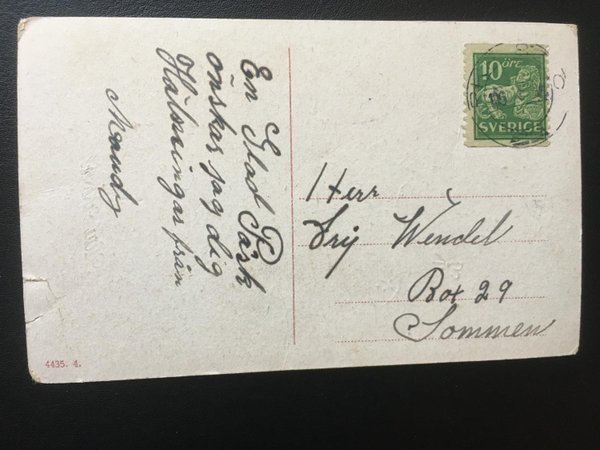 En Glad Påsk
önskar jag dig
Hälsningar från
Maudy
10 ÖRE
SVERIGE
Herr
Wendel
Box 29
Sommen
4435. 4.